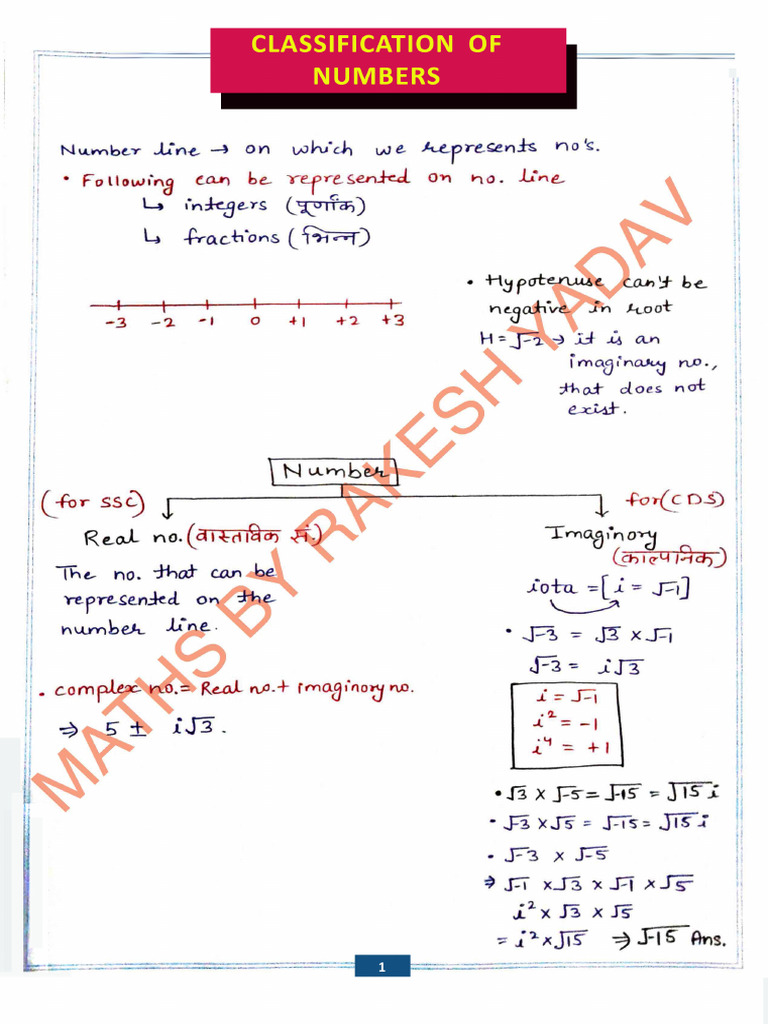 CLASSIFICATION OF
NUMBERS
Number line → on which we represents no's.
• Following can be represented on no. line
↳ integers (पूर्णांक)
↳ fractions (भिन्न)
-3 -2 -1 0 +1 +2 +3
• Hypotenuse can't be
negative in root
H = √-2 → it is an
imaginary no.,
that does not
exist.
Number
(for SSC)
Real no. (वास्तविक सं.)
The no. that can be
represented on the
number line.
• complex no. = Real no. + imaginory no.
⇒ 5 ± i√3.
for (CDS)
Imaginory
(काल्पनिक)
iota = [i = √-1]
• √-3 = √3 × √-1
√-3 = i√3
i = √-1
i² = -1
i⁴ = +1
• √3 × √-5 = √-15 = √15 i
• √-3 × √5 = √-15 = √15 i
• √-3 × √-5
⇒ √-1 × √3 × √-1 × √5
i² × √3 × √5
= i² × √15 ⇒ √-15 Ans.
MATHS BY RAKESH YADAV
1